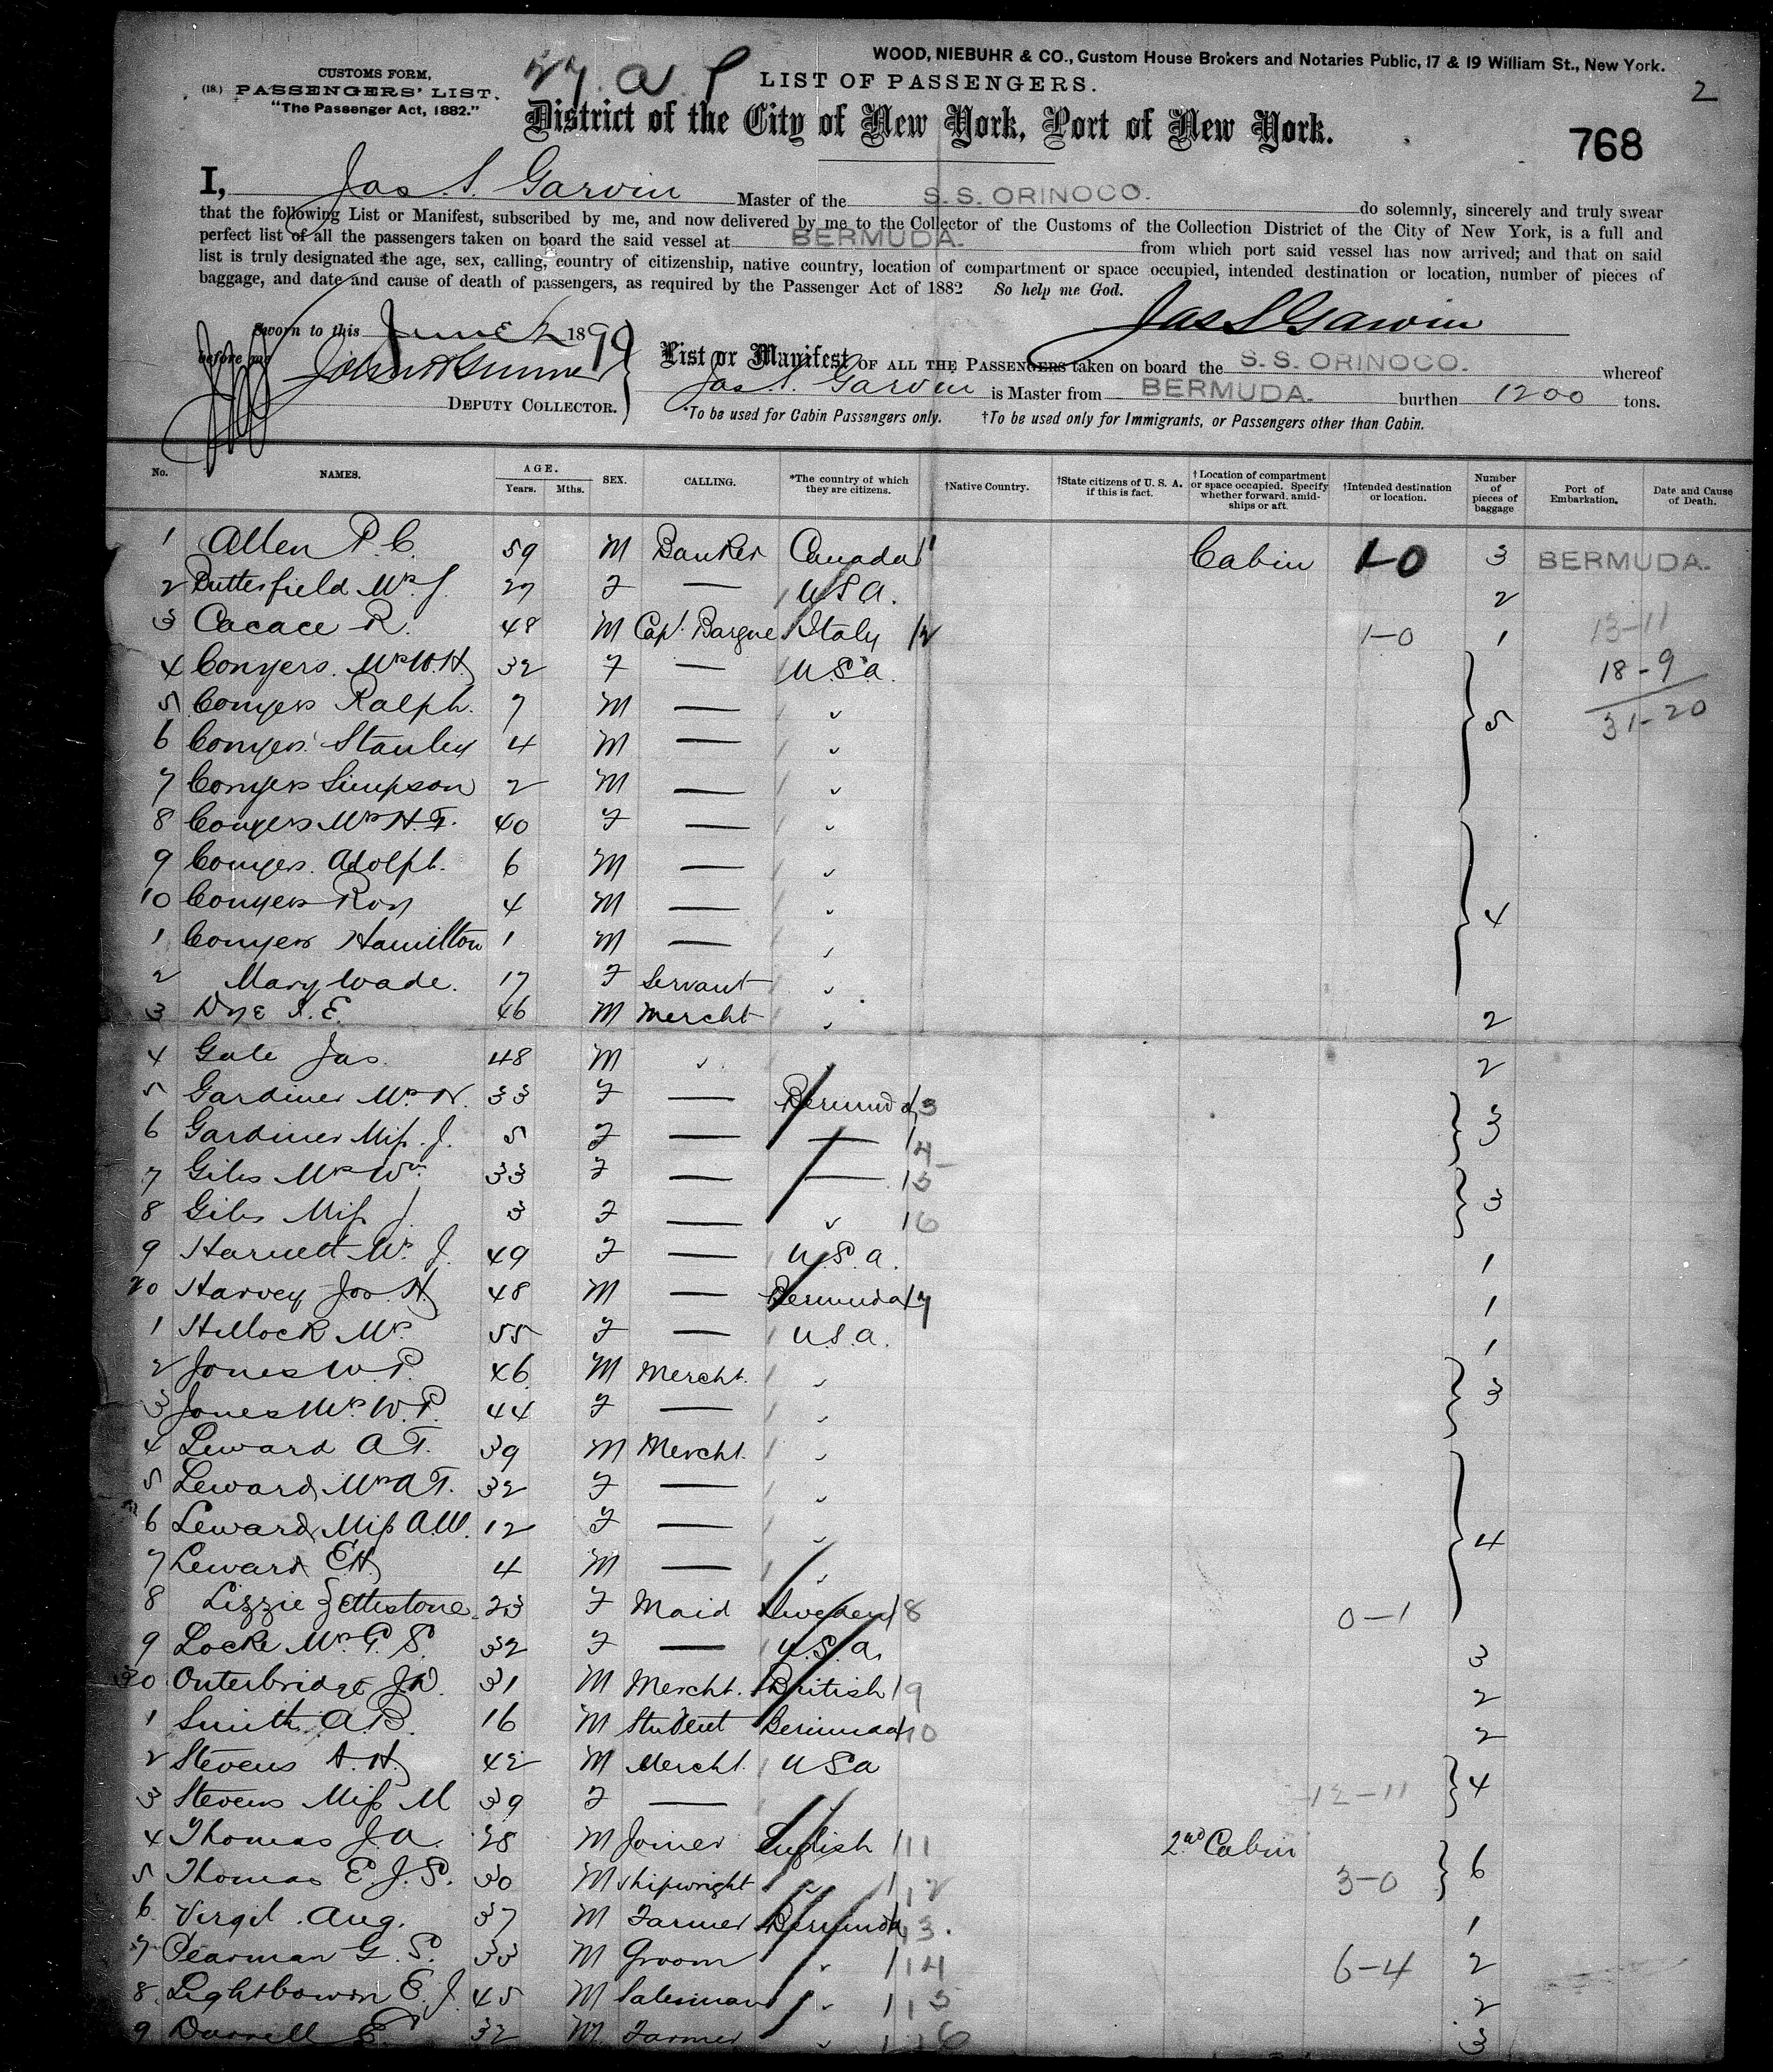 WOOD, NIEBUHR & CO., Custom House Brokers and Notaries Public, 17 & 19 William St., New York.
CUSTOMS FORM,
(18.) PASSENGERS' LIST.
"The Passenger Act, 1882."
LIST OF PASSENGERS.
2
District of the City of New York, Port of New York.
768
I, Jas. S. Garvin Master of the S. S. ORINOCO. do solemnly, sincerely and truly swear
that the following List or Manifest, subscribed by me, and now delivered by me to the Collector of the Customs of the Collection District of the City of New York, is a full and
perfect list of all the passengers taken on board the said vessel at BERMUDA. from which port said vessel has now arrived; and that on said
list is truly designated the age, sex, calling, country of citizenship, native country, location of compartment or space occupied, intended destination or location, number of pieces of
baggage, and date and cause of death of passengers, as required by the Passenger Act of 1882 So help me God.
Jas S Garvin
Sworn to this June 1899
before me
DEPUTY COLLECTOR.
List or Manifest OF ALL THE PASSENGERS taken on board the S. S. ORINOCO. whereof
Jas. S. Garvin is Master from BERMUDA. burthen 1200 tons.
*To be used for Cabin Passengers only. †To be used only for Immigrants, or Passengers other than Cabin.
No. NAMES. AGE. Years. Mths. SEX. CALLING. *The country of which they are citizens. †Native Country. †State citizens of U. S. A. if this is fact. †Location of compartment or space occupied. Specify whether forward, amidships or aft. †Intended destination or location. Number of pieces of baggage Port of Embarkation. Date and Cause of Death.
1 Allen P. C. 59 M Banker Canada 1 Cabin 1-0 3 BERMUDA.
2 Butterfield Mrs J. 27 F — U.S.A. 2
3 Cacace R. 48 M Capt. Barque Italy 2 1-0 1 13-11
4 Conyers. Mrs W.H. 32 F — U.S.A. 18-9
5 Conyers Ralph. 7 M — " 5 31-20
6 Conyers Stanley 4 M — "
7 Conyers Simpson 2 M — "
8 Conyers Mrs H.T. 40 F — "
9 Conyers. Adolph. 6 M — "
10 Conyers Roy 4 M — " 4
1 Conyers Hamilton 1 M — "
2 Mary Wade. 17 F Servant "
3 Dye I. E. 46 M Mercht " 2
4 Gale Jas. 48 M " " 2
5 Gardiner Mrs N. 33 F — Bermuda 3 3
6 Gardiner Miss. J. 5 F — — 4
7 Giles Mrs Wm 33 F — — 5
8 Giles Miss J. 3 F — " 6 3
9 Harnett Mrs J. 49 F — U.S.A. 1
20 Harvey Jos. H. 48 M — Bermuda 7 1
1 Hillock Mrs. 55 F — U.S.A. 1
2 Jones W. P. 46 M Mercht. " 3
3 Jones Mrs W. P. 44 F — "
4 Leward A T. 39 M Mercht. "
5 Leward Mrs A T. 32 F — "
6 Leward Miss A.W. 12 F — " 4
7 Leward E H 4 M — "
8 Lizzie Zettestone 23 F Maid Sweden 8 0-1
9 Locke Mrs P. S. 32 F — U.S.A. 3
30 Outerbridge J N. 31 M Mercht. British 9 2
1 Smith A. B. 16 M Student Bermuda 10 2
2 Stevens A. H. 42 M Mercht. USA
3 Stevens Miss M 39 F — " 12-11 4
4 Thomas J. A. 28 M Joiner English 11 2nd Cabin
5 Thomas E. J. S. 30 M Shipwright " 12 3-0 6
6 Virgil. Aug. 37 M Farmer Bermuda 13. 1
7 Pearman G. S. 33 M Groom " 14 6-4 2
8 Lightbown E. J. 45 M Salesman " 15 2
9 Darrell E. 32 M Farmer " 16 3